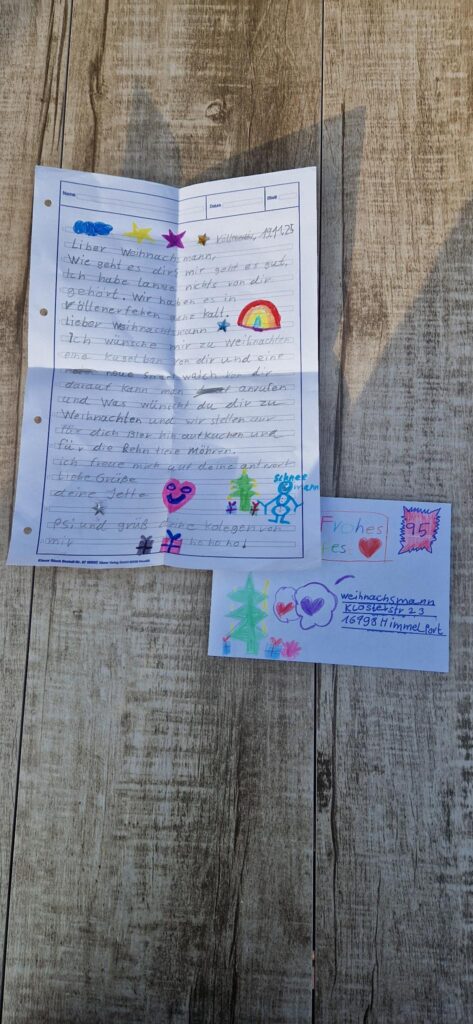 Name:
Datum:
Blatt:
19.11.25
Liber Weihnachsmann,
Wie geht es dir? mir geht es gut,
Ich habe lange nichts von dir
gehört. Wir haben es in
kalt.
Lieber Weihnachtsmann
Ich wünsche mir zu Weihnachten
eine Kugelban von dir und eine
neue Smart watch von dir
darauf kann man anrufen
und Was wünscht du dir zu
Weihnachten und wir stellen auf
für dich Bier hin auf kuchen und
für die Rehn tiere Möhren.
ich freue mich auf deine antwort
Liebe Grüße
deine Jette
Schnee
mann
psi und grüß deine kolegen von
mir
ho ho ho!
Frohes
es
95
Weihnachsmann
Klosterstr 23
16798 Himmel Fort